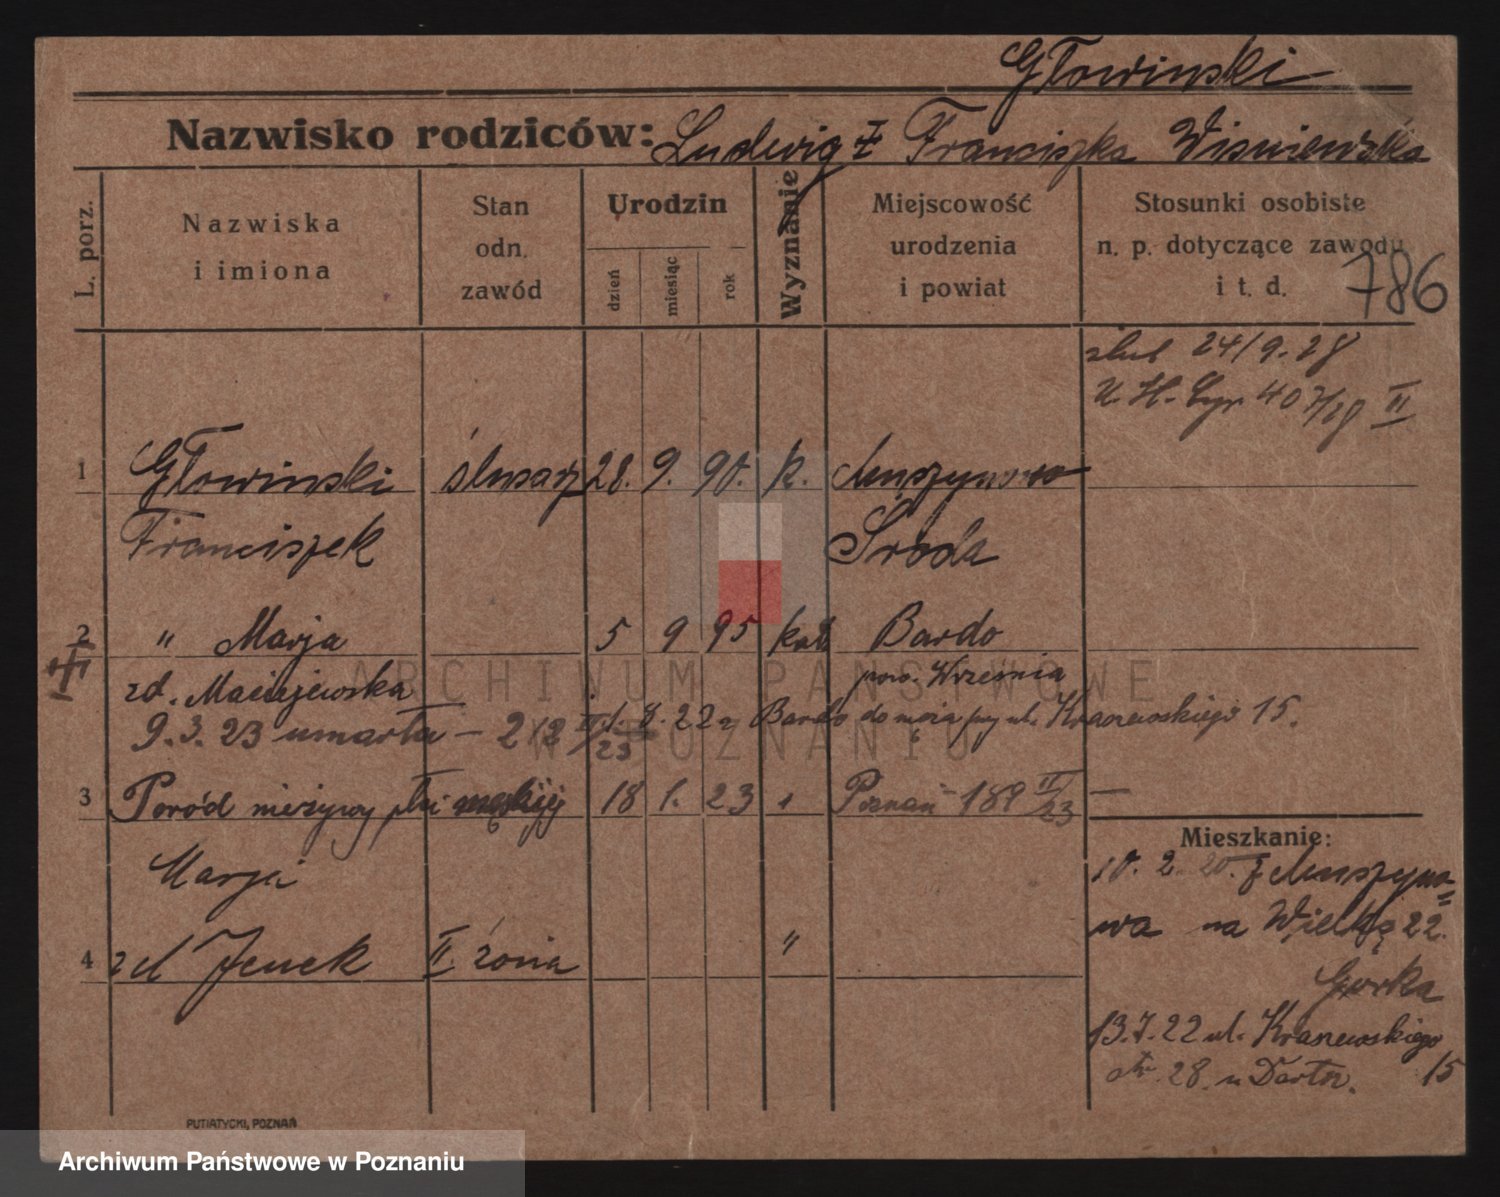 Głowinski
Nazwisko rodziców: Ludwig z Franciszka Wisniewska
L. porz.
Nazwiska
i imiona
Stan
odn.
zawód
Urodzin
dzień
miesiąc
rok
Wyznanie
Miejscowość
urodzenia
i powiat
Stosunki osobiste
n. p. dotyczące zawodu
i t. d.
786
ślub 24/9.28
407/28 II
1 Głowinski ślusarz 28. 9. 90. k.
Franciszek Środa
2 " Marja 5 9 95 kat Bardo
zd. Maciejewska pow. Września
9.3.23 umarła - 212 II/23 1.8.22 z Bardo do męża przy ul. Kraszewskiego 15.
3 Poród nieżywy płci męskiej 18 1. 23 " Poznań - 189 II/23 —
Mieszkanie:
10. 2. 20. z Murzyno=
wa na Wielką 22.
Marja
4 zd Jenek II. żona "
Górka
13.7.22 ul. Kraszewskiego
15
28. u
PUTIATYCKI, POZNAŃ
ARCHIWUM PAŃSTWOWE
W POZNANIU
Archiwum Państwowe w Poznaniu